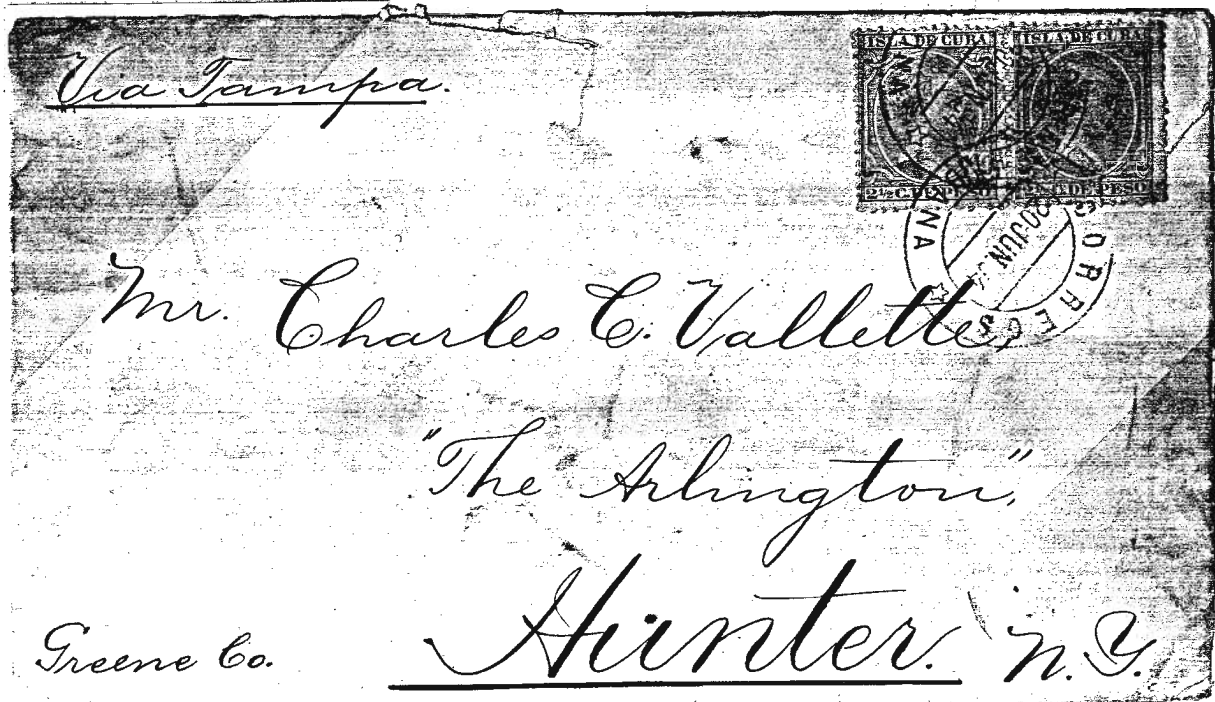 Via Tampa.
ISLA DE CUBA ISLA DE CUBA
DE PESO
CORREOS
20 JUN
Mr. Charles C. Vallette,
"The Arlington",
Hunter. N.Y.
Greene Co.